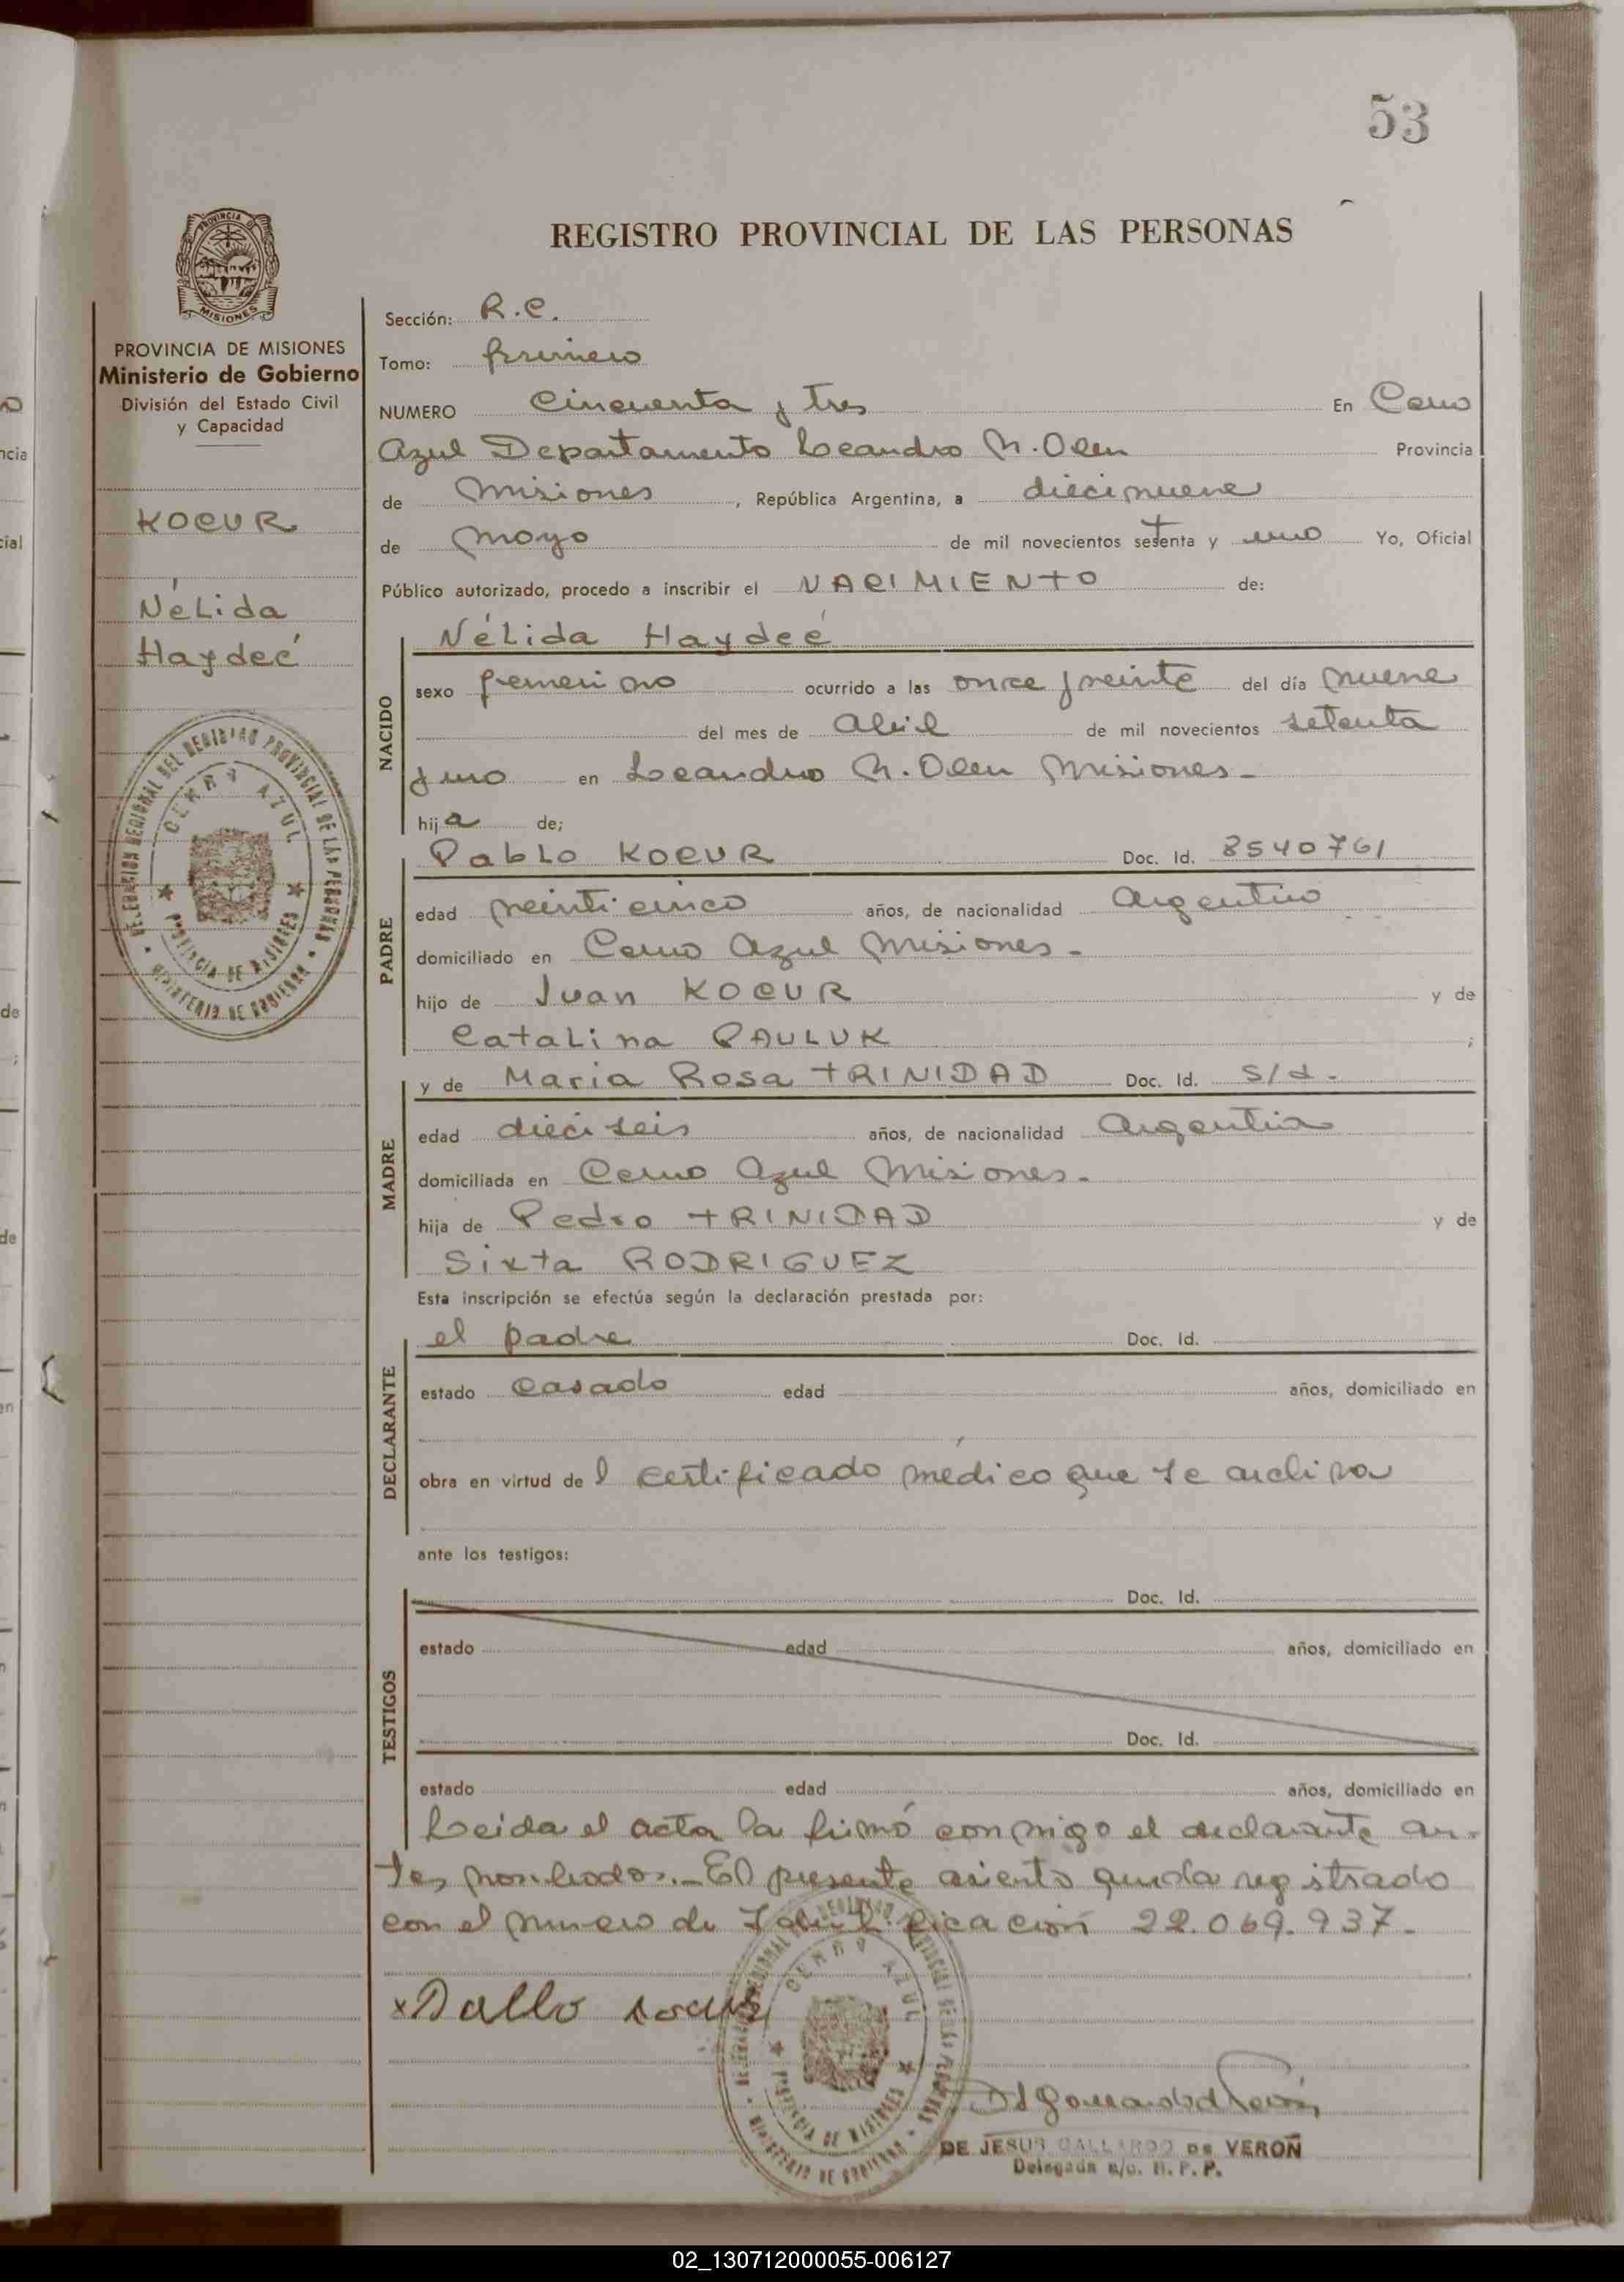 53
REGISTRO PROVINCIAL DE LAS PERSONAS
PROVINCIA DE MISIONES
MISIONES
PROVINCIA DE MISIONES
Ministerio de Gobierno
División del Estado Civil
y Capacidad
KOCUR
Nélida
Haydeé
CERRO AZUL
PROVINCIA DE MISIONES
Sección: R.C.
Tomo: primero
NUMERO Cincuenta y tres En Cerro
Azul Departamento Leandro N. Alem Provincia
de Misiones, República Argentina, a diecinueve
de mayo de mil novecientos setenta y uno Yo, Oficial
Público autorizado, procedo a inscribir el NACIMIENTO de:
NACIDO
Nélida Haydeé
sexo femenino ocurrido a las once y veinte del día nueve
del mes de Abril de mil novecientos setenta
y uno en Leandro N. Alem Misiones-
hija de;
PADRE
Pablo KOCUR Doc. Id. 8540761
edad veinticinco años, de nacionalidad Argentino
domiciliado en Cerro Azul Misiones-
hijo de Juan KOCUR y de
Catalina PAULUK ;
MADRE
y de Maria Rosa TRINIDAD Doc. Id. S/d.
edad dieciseis años, de nacionalidad Argentina
domiciliada en Cerro Azul Misiones.
hija de Pedro TRINIDAD y de
Sixta RODRIGUEZ
Esta inscripción se efectúa según la declaración prestada por:
DECLARANTE
el padre Doc. Id.
estado casado edad años, domiciliado en
obra en virtud del certificado médico que se archiva
ante los testigos:
TESTIGOS
Doc. Id.
estado edad años, domiciliado en
Doc. Id.
estado edad años, domiciliado en
Leida el acta la firmó conmigo el declarante an-
tes nombrado.-El presente asiento queda registrado
con el numero de Identificación 22.069.937.
CERRO AZUL
PROVINCIA DE MISIONES
DE JESUS GALLARDO DE VERON
Delegada
02_130712000055-006127